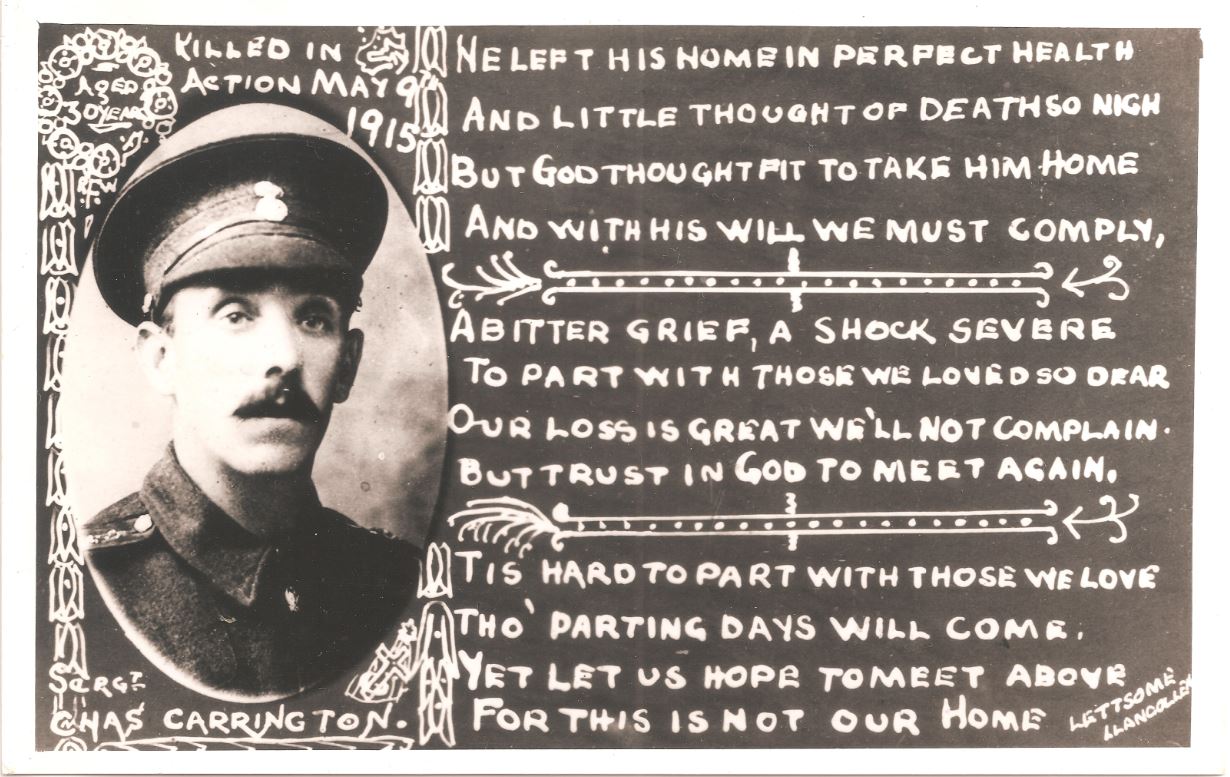 KILLED IN
ACTION MAY 9TH
1915
AGED
30 YEARS
R.W.F.
SERGT.
CHAS CARRINGTON.
HE LEFT HIS HOME IN PERFECT HEALTH
AND LITTLE THOUGHT OF DEATH SO NIGH
BUT GOD THOUGHT FIT TO TAKE HIM HOME
AND WITH HIS WILL WE MUST COMPLY,
A BITTER GRIEF, A SHOCK SEVERE
TO PART WITH THOSE WE LOVED SO DEAR
OUR LOSS IS GREAT WE'LL NOT COMPLAIN.
BUT TRUST IN GOD TO MEET AGAIN.
TIS HARD TO PART WITH THOSE WE LOVE
THO' PARTING DAYS WILL COME.
YET LET US HOPE TO MEET ABOVE
FOR THIS IS NOT OUR HOME
LETTSOME
LLANGOLLEN